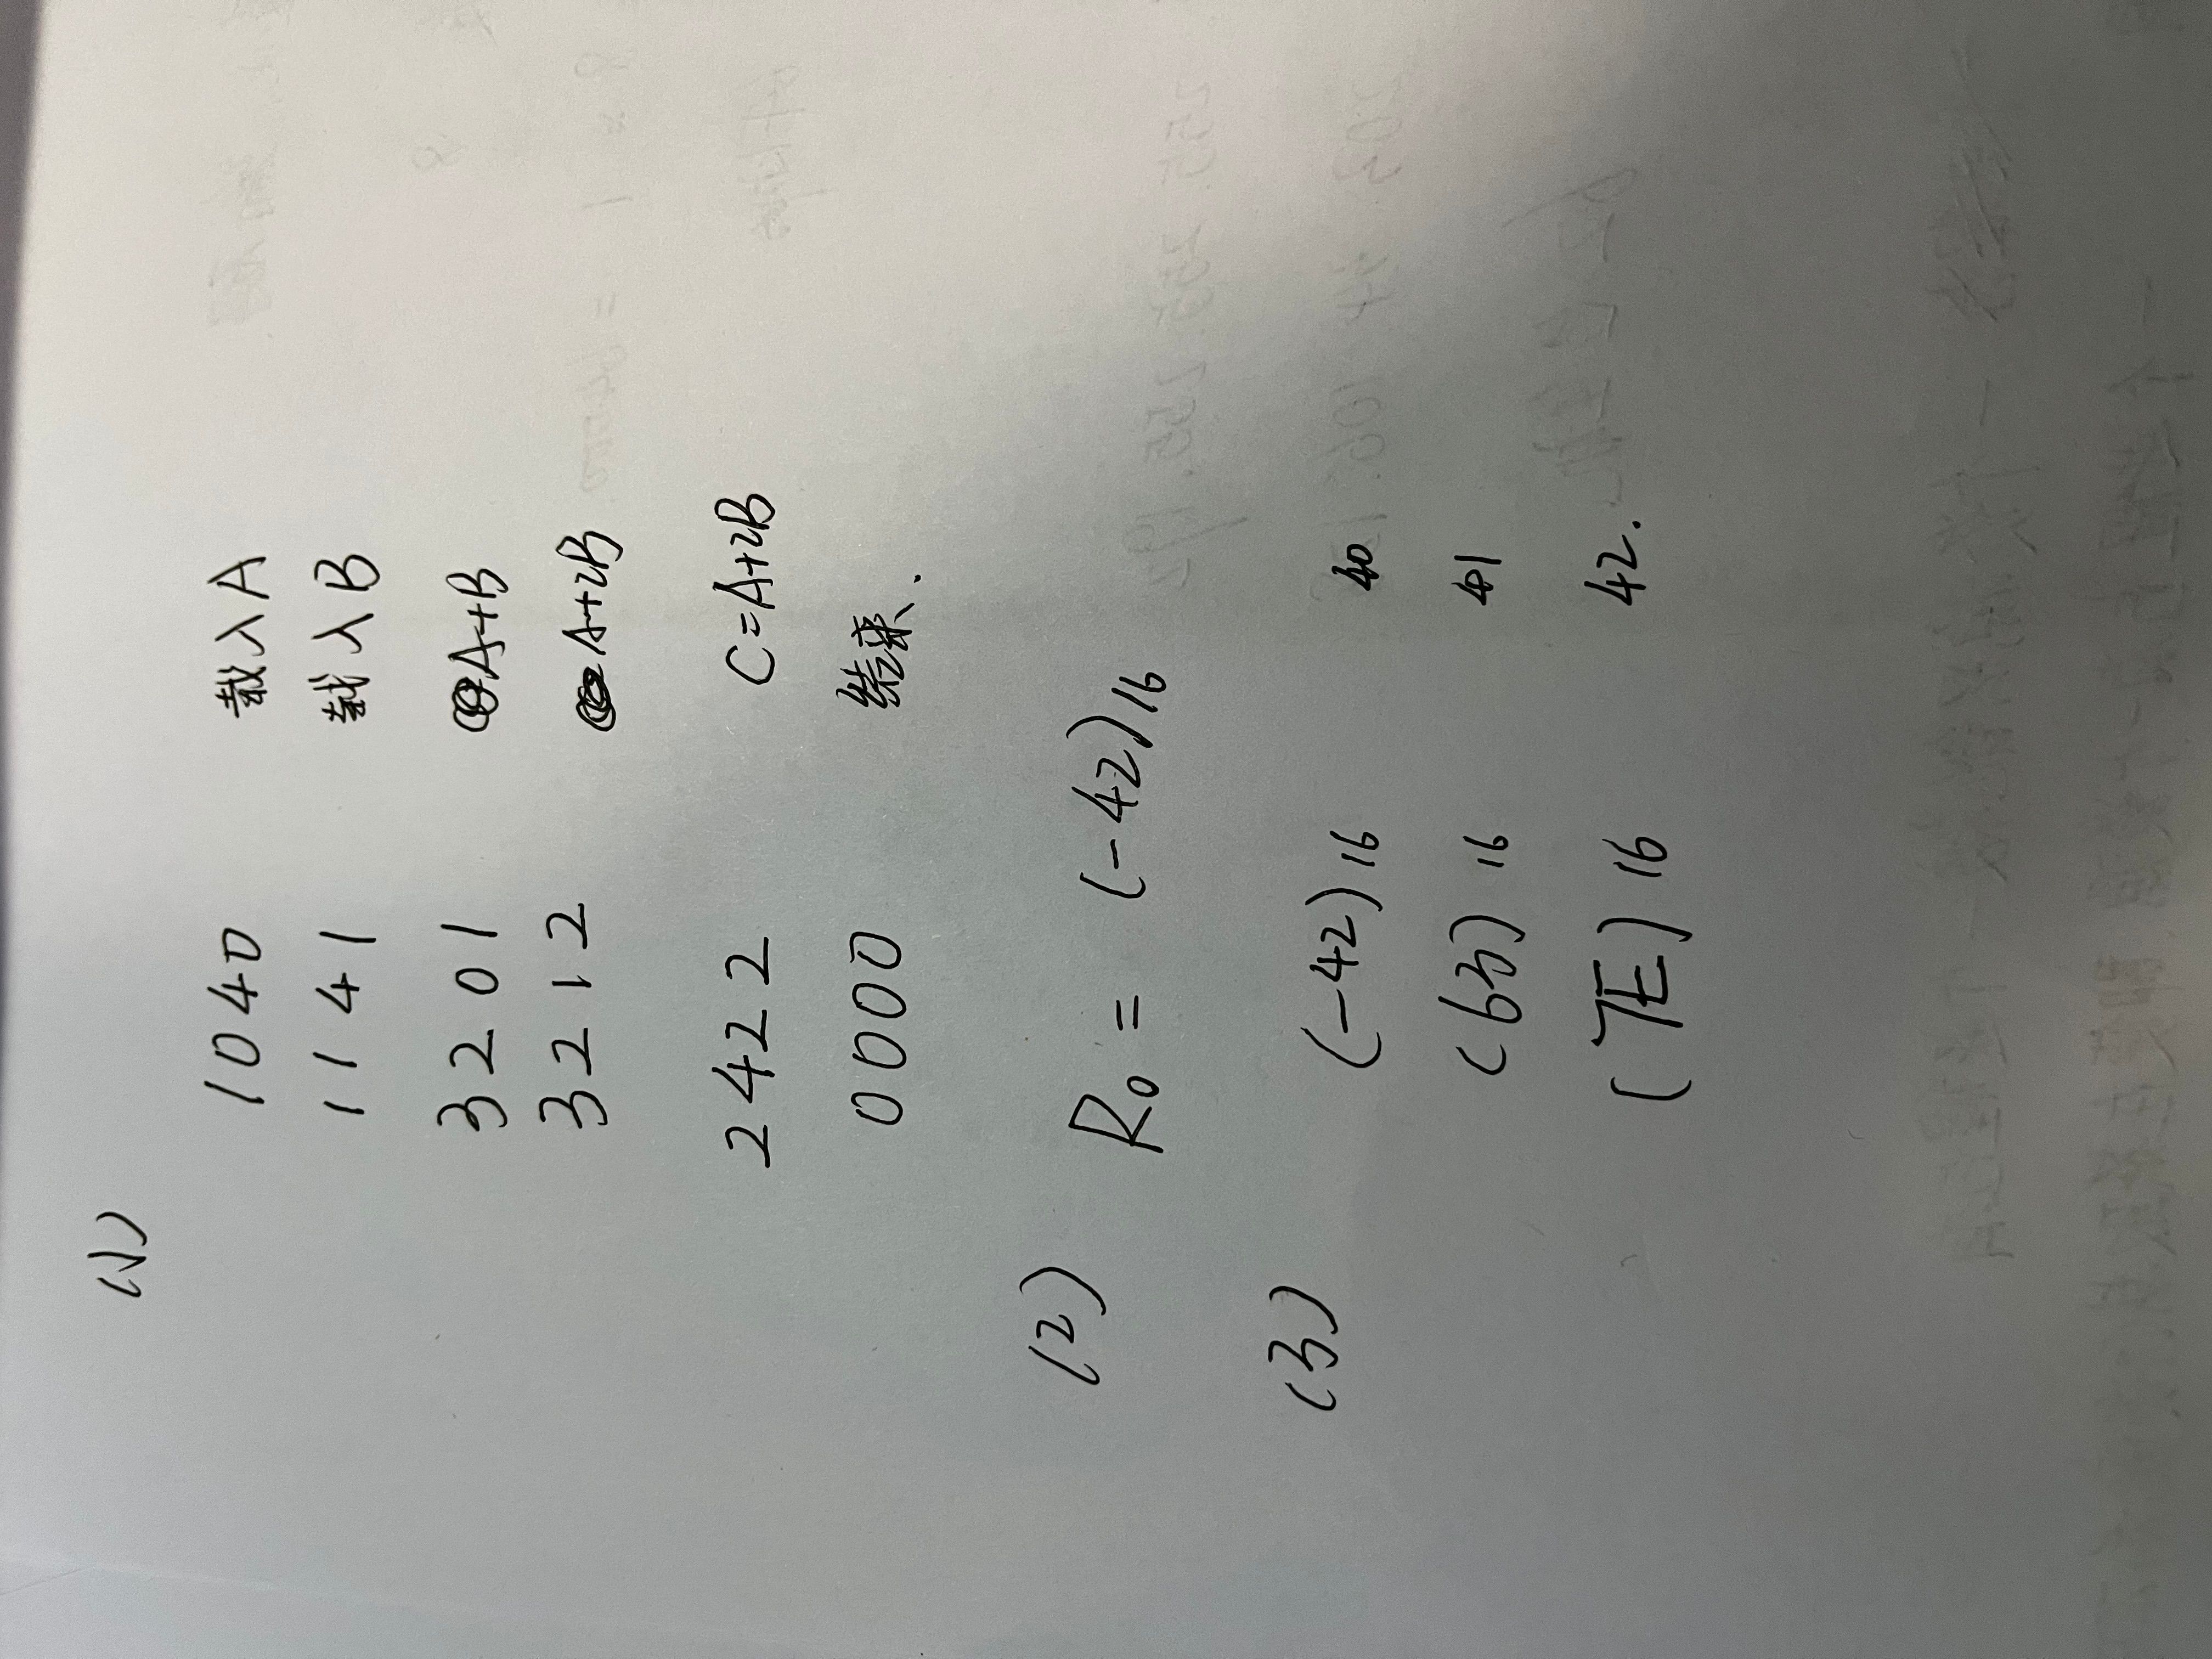 (1)
1040 载入A
1141 载入B
3201 A+B
3212 A+2B
2422 C=A+2B
0000 结束.
(2) R₀ = (-42)₁₆
(3) (-42)₁₆ 40
(63)₁₆ 41
(7E)₁₆ 42.